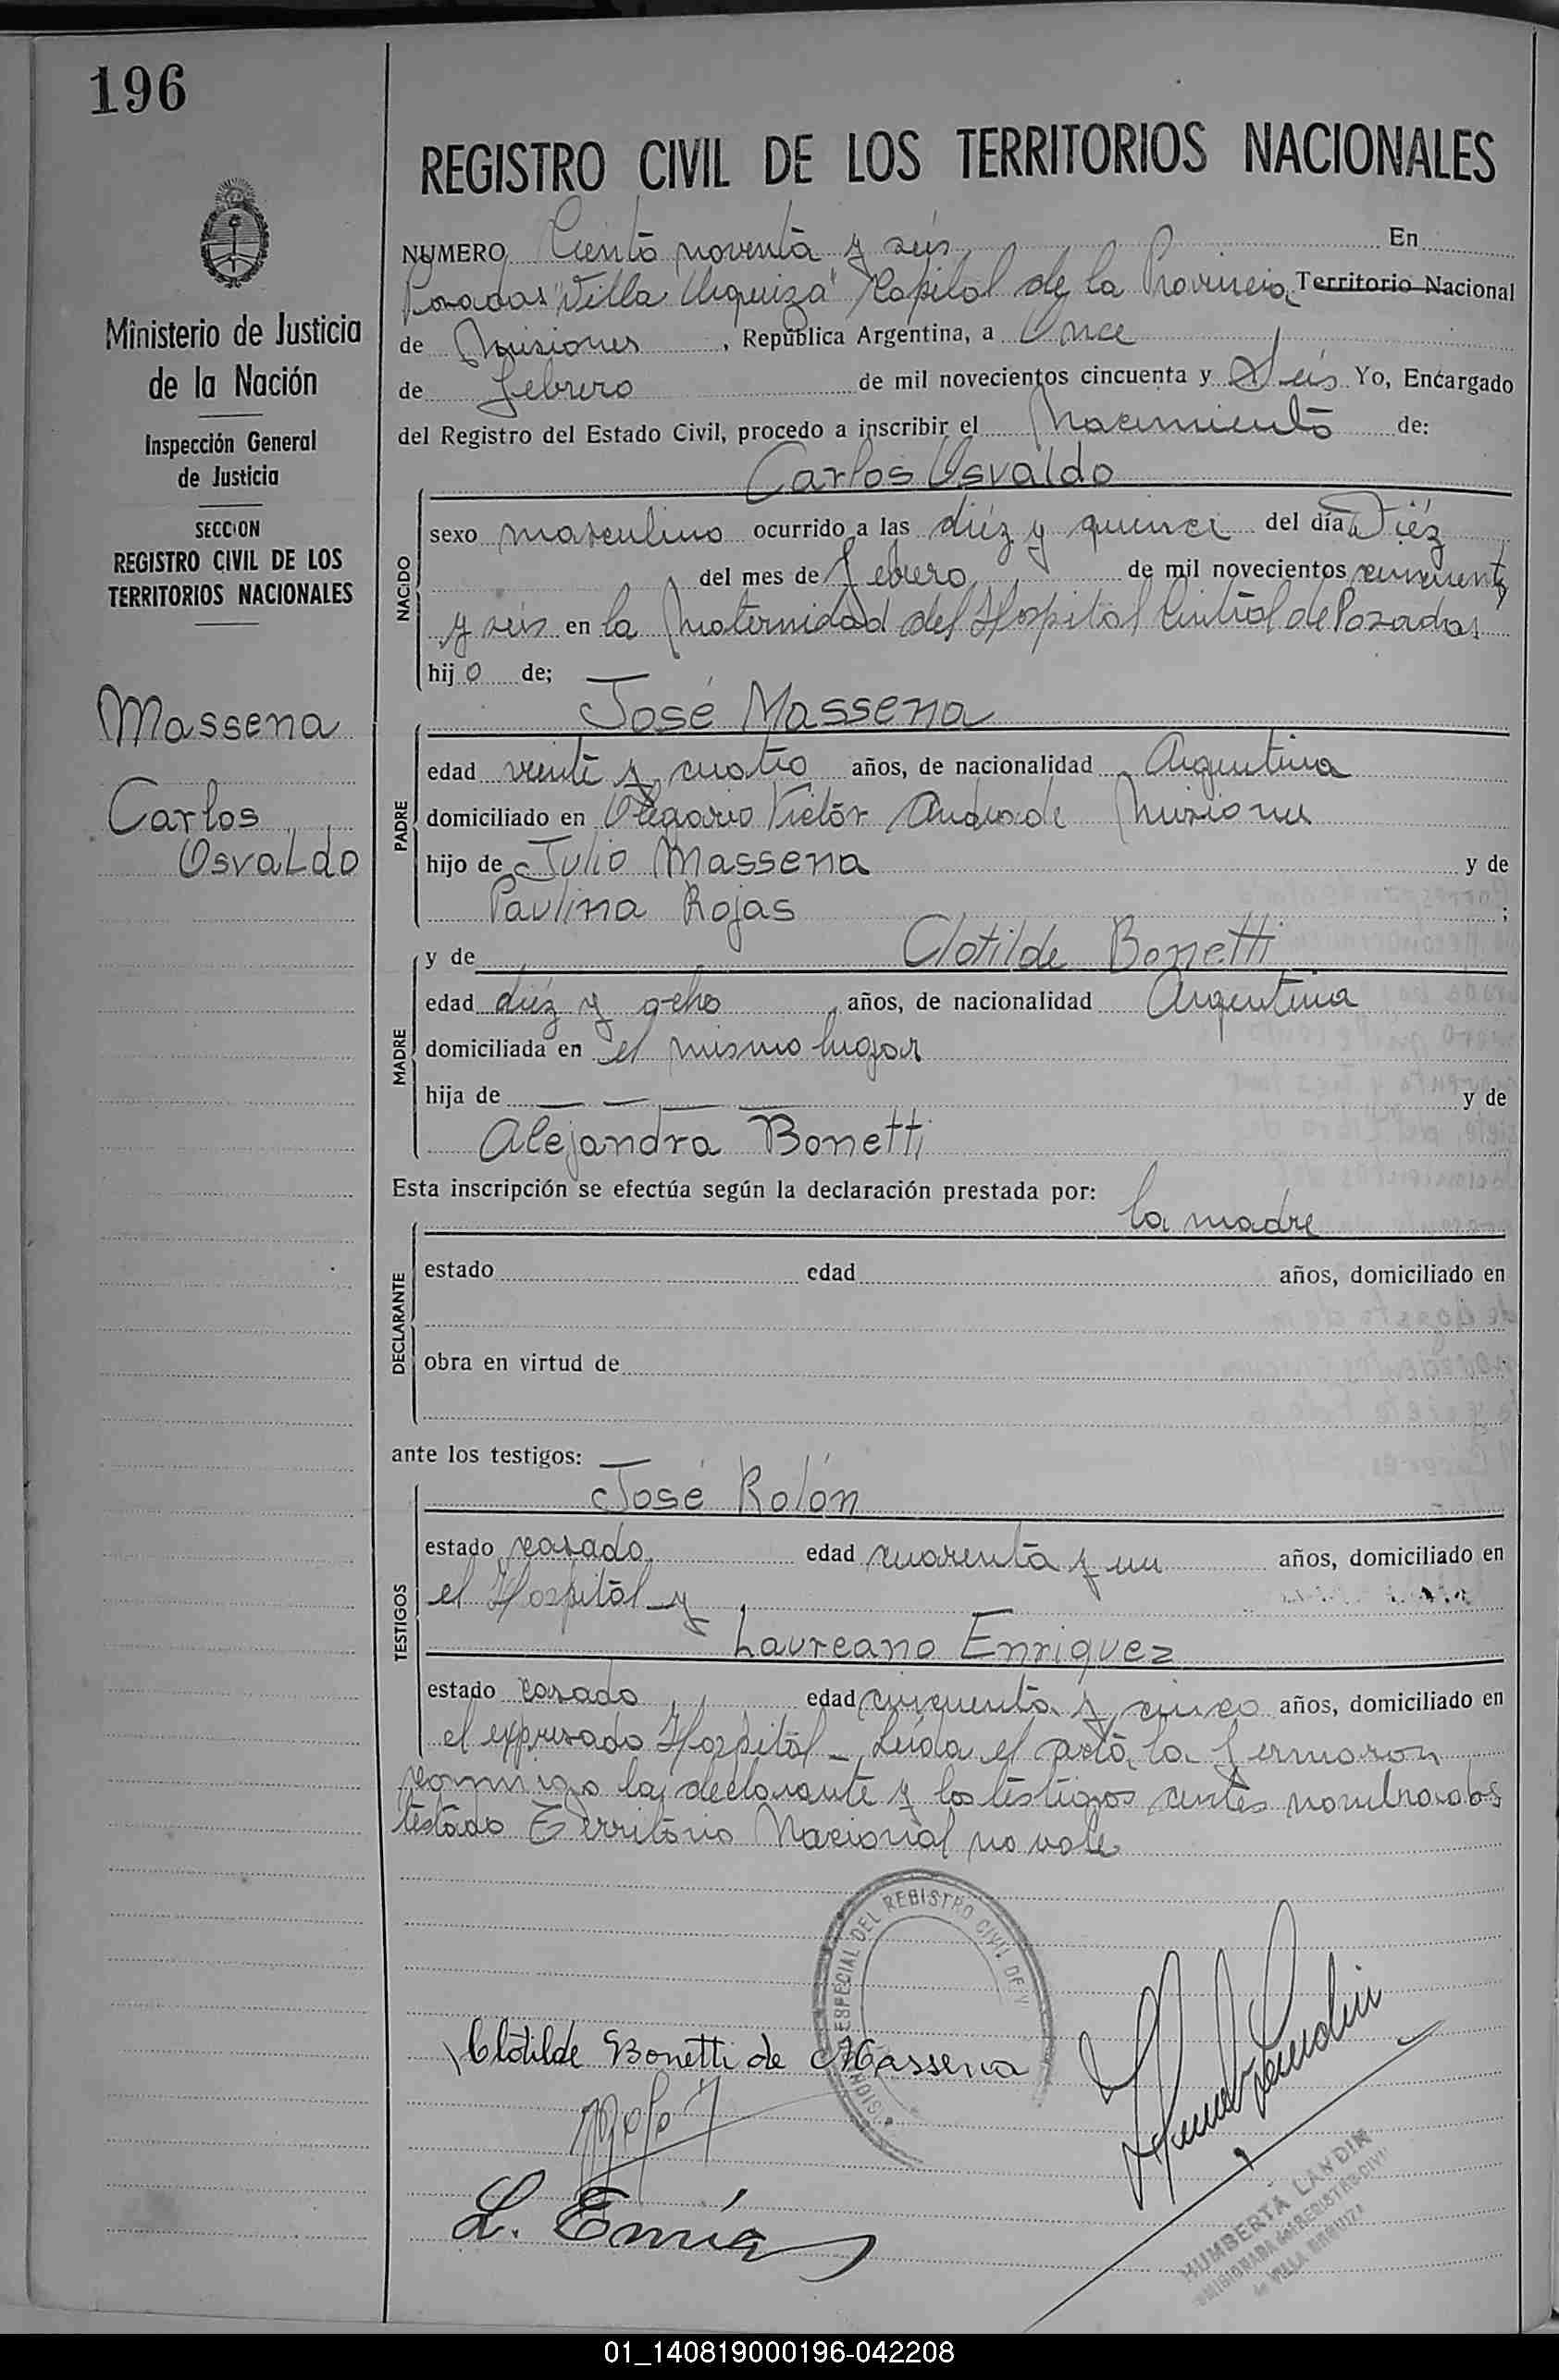 196
REGISTRO CIVIL DE LOS TERRITORIOS NACIONALES
Ministerio de Justicia
de la Nación
Inspección General
de Justicia
SECCION
REGISTRO CIVIL DE LOS
TERRITORIOS NACIONALES
Massena
Carlos
Osvaldo
NUMERO Ciento noventa y seis En
Posadas "Villa Urquiza" Capital de la Provincia Territorio Nacional
de Misiones, República Argentina, a Once
de febrero de mil novecientos cincuenta y Seis Yo, Encargado
del Registro del Estado Civil, procedo a inscribir el Nacimiento de:
Carlos Osvaldo
NACIDO
sexo masculino ocurrido a las diéz y quince del día Diéz
del mes de febrero de mil novecientos cincuenta
y seis en la Maternidad del Hospital Central de Posadas
hijo de;
José Massena
PADRE
edad veinte y cuatro años, de nacionalidad Argentina
domiciliado en Olegario Victor Andrade Misiones
hijo de Julio Massena y de
Paulina Rojas ;
y de Clotilde Bonetti
MADRE
edad diéz y ocho años, de nacionalidad Argentina
domiciliada en el mismo lugar
hija de — — — — y de
Alejandra Bonetti
Esta inscripción se efectúa según la declaración prestada por:
la madre
DECLARANTE
estado edad años, domiciliado en
obra en virtud de
ante los testigos:
José Rolón
TESTIGOS
estado casado edad cuarenta y un años, domiciliado en
el Hospital y
Laureano Enriquez
estado casado edad cincuenta y cinco años, domiciliado en
el expresado Hospital - Leída el acta, la firmaron
conmigo la declarante y los testigos antes nombrados
testado Territorio Nacional no vale
ESPECIAL DEL REGISTRO CIVIL DE V
Clotilde Bonetti de Massena
L. Enríq
HUMBERTA LANDIN
REGISTRO CIVIL
de VILLA URQUIZA
01_140819000196-042208